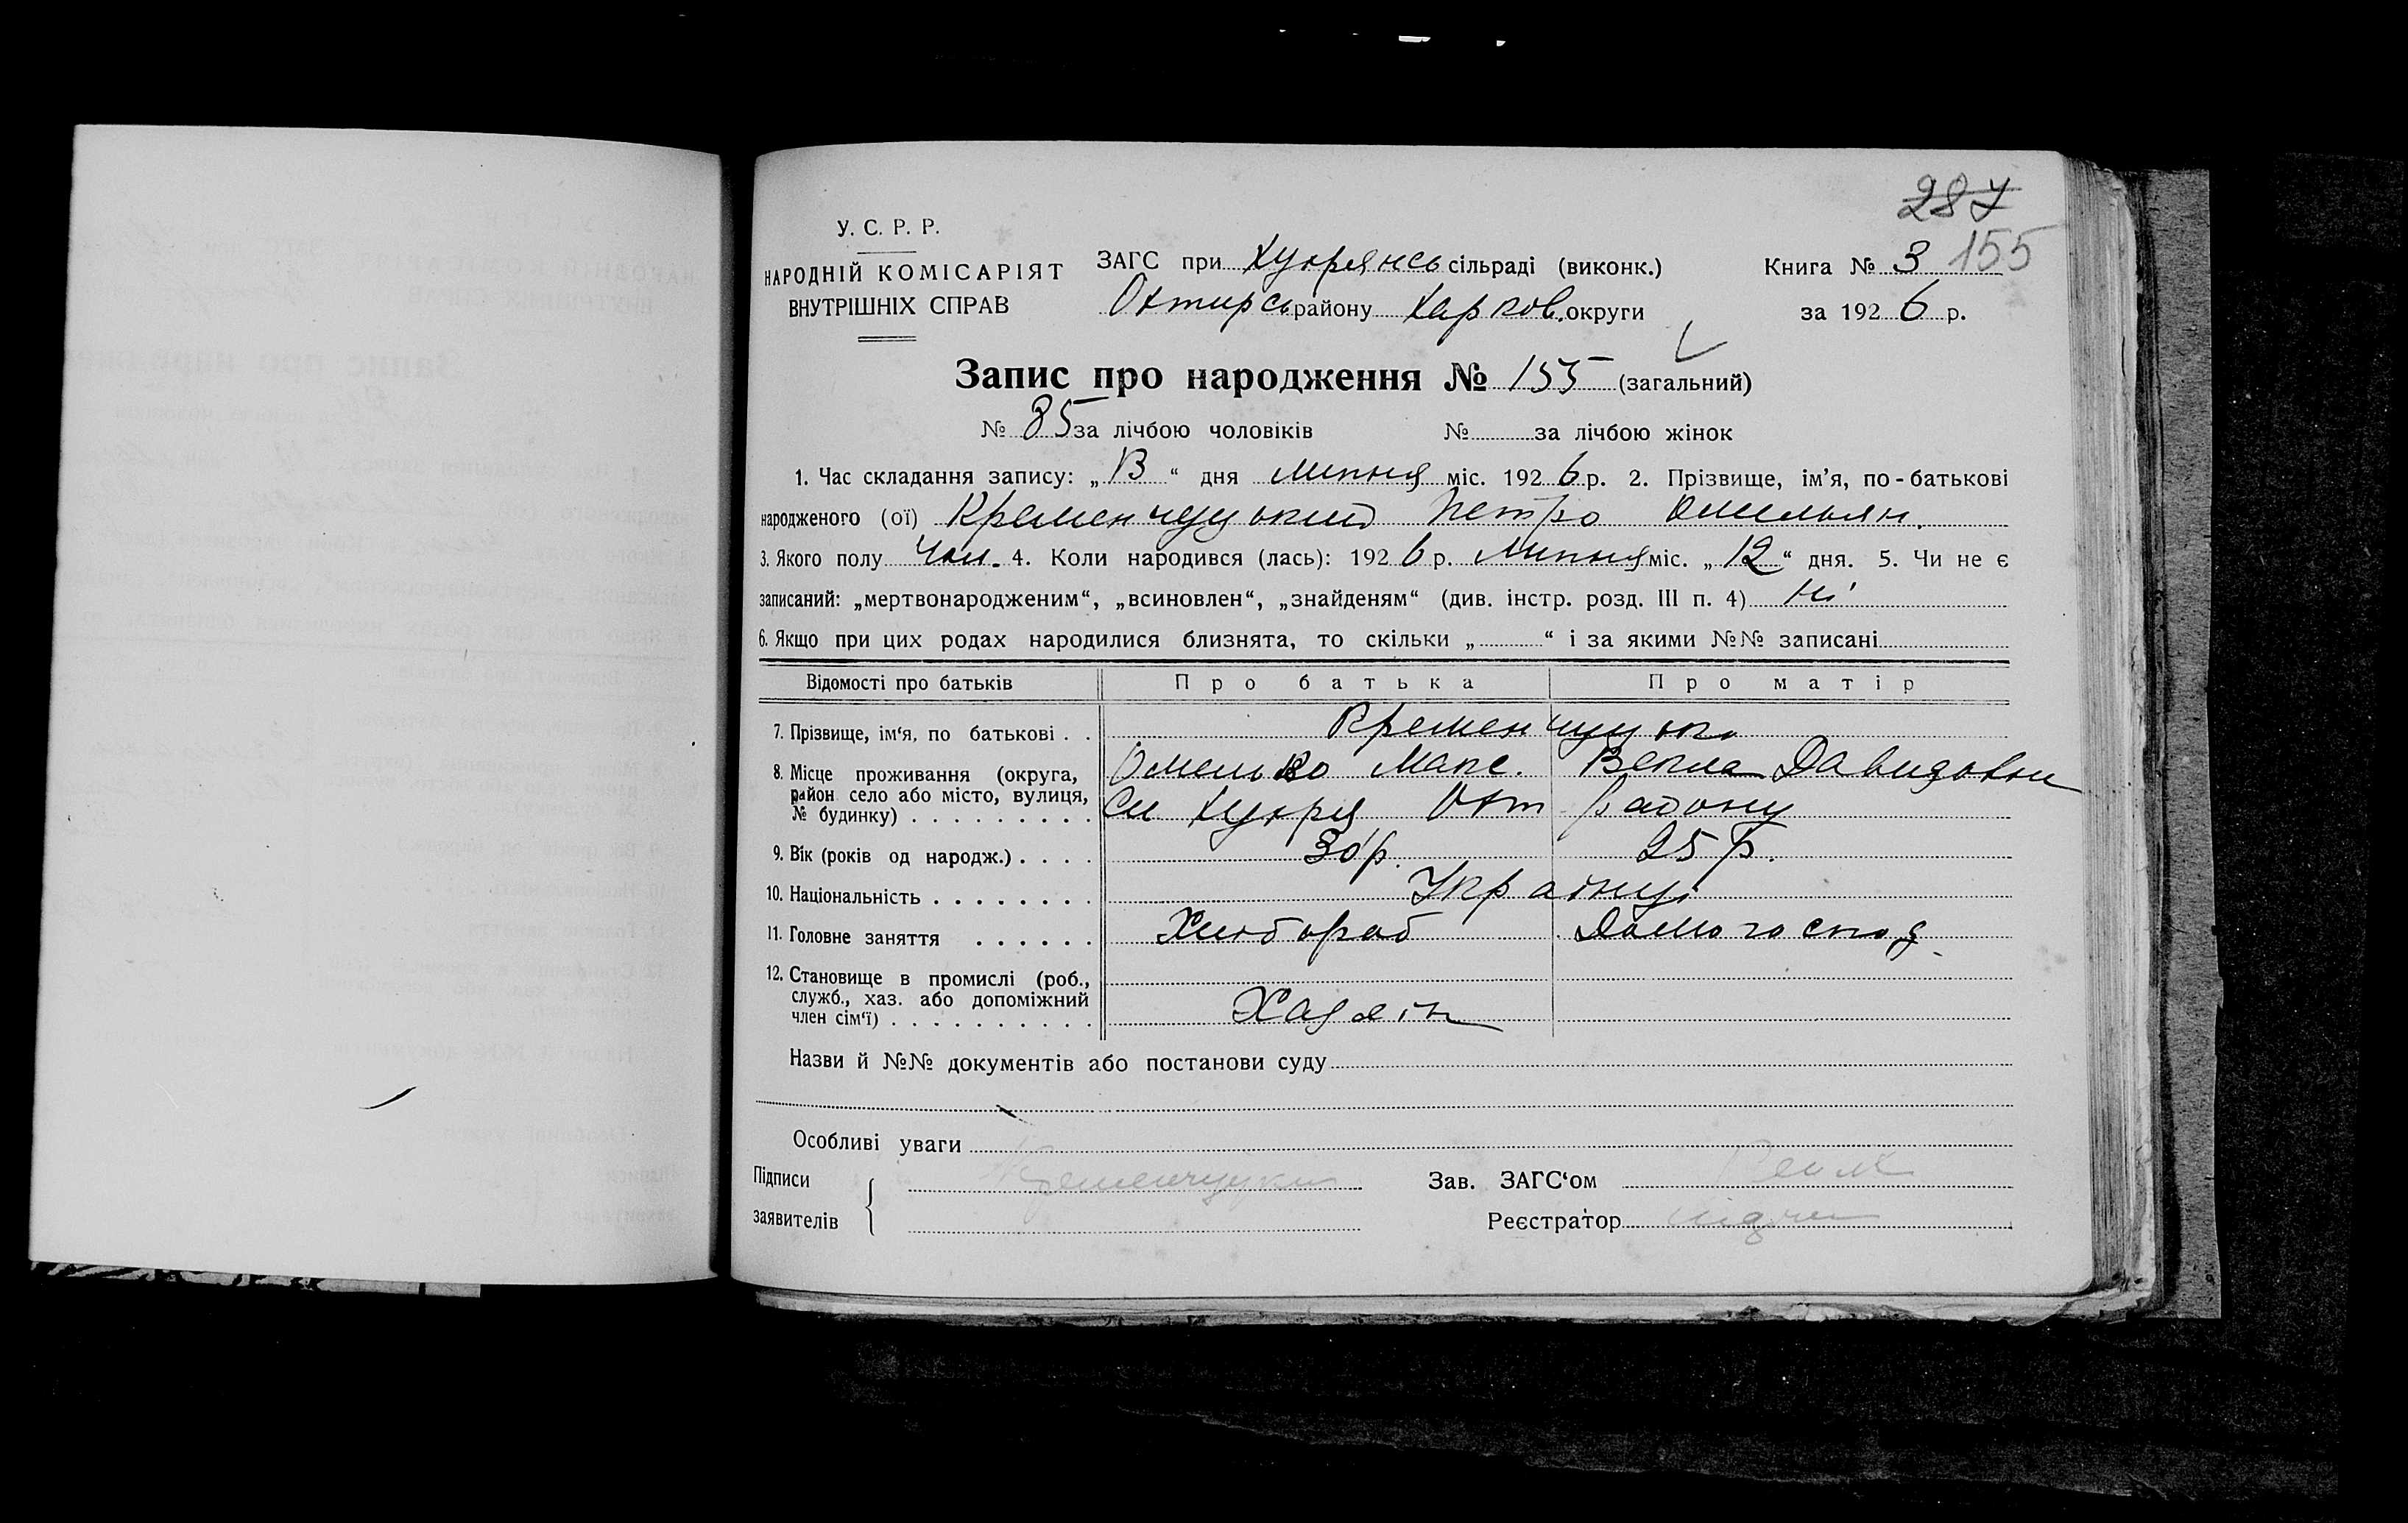 287
155
У. С. Р. Р.
НАРОДНІЙ КОМІСАРІЯТ
ВНУТРІШНІХ СПРАВ
ЗАГС при Хухрянсь сільраді (виконк.)
Охтирсь району Харков. округи
Книга № 3
за 1926 р.
Запис про народження № 155 (загальний)
№ 85 за лічбою чоловіків № за лічбою жінок
1. Час складання запису: „13“ дня Липня міс. 1926 р. 2. Прізвище, ім'я, по-батькові
народженого (ої) Кременчуцький Петро Омельян.
3. Якого полу Чол. 4. Коли народився (лась): 1926 р. Липня міс. „12“ дня. 5. Чи не є
записаний: „мертвонародженим“, „всиновлен“, „знайденям“ (див. інстр. розд. III п. 4) Ні
6. Якщо при цих родах народилися близнята, то скільки „ “ і за якими №№ записані
Відомості про батьків Про батька Про матір
7. Прізвище, ім‘я, по батькові . . Кременчуцькі
Омелько Макс. Векла Давидовна
8. Місце проживання (округа,
район село або місто, вулиця,
№ будинку) . . . . . . . . . Сл Хухря Охт району
9. Вік (років од народж.) . . . . 30 р. 25 р.
10. Національність . . . . . . . . Українці
11. Головне заняття . . . . . . Хлібороб Домогоспод.
12. Становище в промислі (роб.,
служб., хаз. або допоміжний
член сім‘ї) . . . . . . . . . . Хазяїн
Назви й №№ документів або постанови суду
Особливі уваги
Підписи
заявителів
Кременчуцкий
Зав. ЗАГС‘ом
Реєстратор